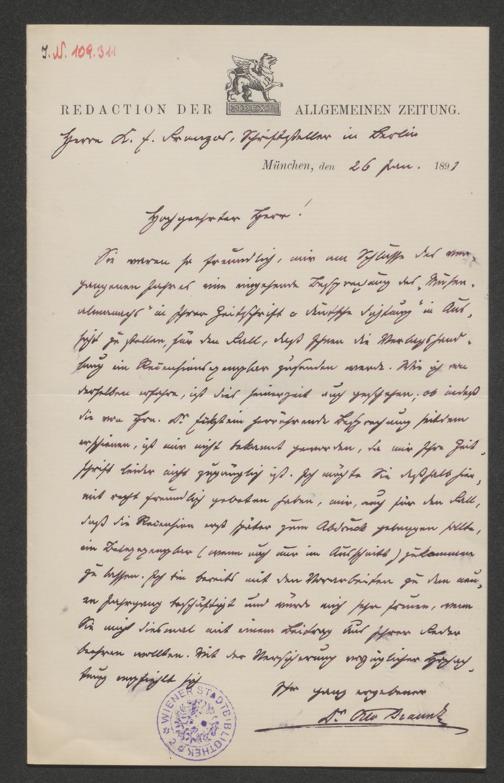 J.N. 109.311
REDACTION DER ALLGEMEINEN ZEITUNG.
Herrn K. E. Franzos, Schriftsteller in Berlin
München, den 26 Jan. 1891
Hochgeehrter Herr!
Sie waren so freundlich, mir am Schlusse des ver-
gangenen Jahres eine eingehende Besprechung des "Musen-
almanachs" in Ihrer Zeitschrift "Deutsche Dichtung" in Aus-
sicht zu stellen, für den Fall, daß Ihnen die Verlagshand-
lung ein Recensionsexemplar zusenden werde. Wie ich von
derselben erfahre, ist dies seinerzeit auch geschehen; ob indeß
die von Hrn. Dr. herrührende Besprechung seitdem
erschienen, ist mir nicht bekannt geworden, da mir Ihre Zeit-
schrift leider nicht zugänglich ist. Ich möchte Sie deßhalb hie-
mit recht freundlich gebeten haben, mir, auch für den Fall,
daß die Recension erst später zum Abdruck gelangen sollte,
ein Belegexemplar (wenn auch nur im Ausschnitt) zukommen
zu lassen. Ich bin bereits mit den Vorarbeiten zu dem neu-
en Jahrgang beschäftigt und würde mich sehr freuen, wenn
Sie mich diesmal mit einem Beitrag aus Ihrer Feder
beehren wollten. Mit der Versicherung vorzüglicher Hochach-
tung empfiehlt sich
Ihr ganz ergebener
Dr. Otto Braun
WIENER STADTBIBLIOTHEK